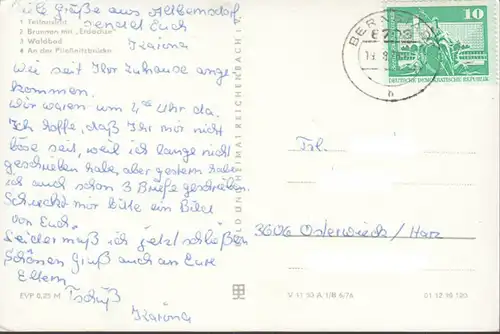 Viele Grüße aus Altbernsdorf
sendet Euch
Karina
1 Teilansicht
2 Brunnen mit „Erdachse“
3 Waldbad
4 An der Pließnitzbrücke
Wie seit Ihr zuhause ange-
kommen.
Wir waren um 4 Uhr da.
Ich hoffe, daß Ihr mir nicht
böse seit, weil ich lange nicht
geschrieben habe, aber gestern habe
ich auch schon 3 Briefe geschrieben.
Schickt mir bitte ein Bild
von Euch.
Leider muß ich jetzt schließen
Schönen Gruß auch an Eure
Eltern
Tschüß
Karina
EVP 0,25 M
BILD UND HEIMAT REICHENBACH i. V.
10
DEUTSCHE DEMOKRATISCHE REPUBLIK
h
Frl.
3606 Osterwieck / Harz
V 11 50 A 1/B 6/76
01 12 10 120